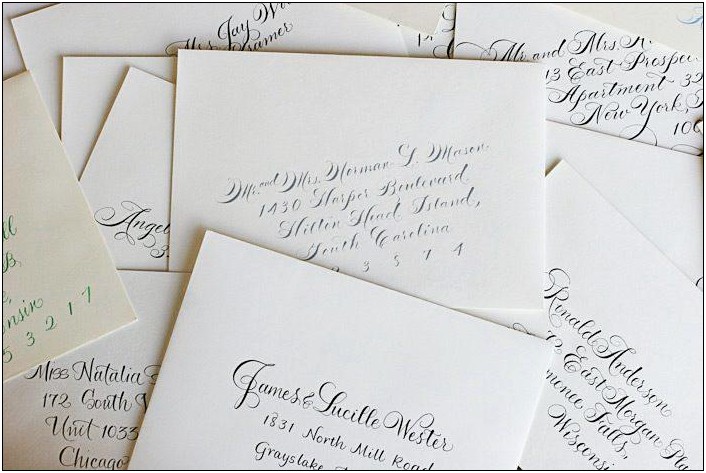 Mrs. Jay
Mr. and Mrs.
13 East Prospe
Apartment 32
New York,
100
Mr. and Mrs. Norman G. Mason
1430 Harper Boulevard
Hilton Head Island,
South Carolina
3 8 7 4
Angel
nsin
5 3 2 1 7
Miss Natalia
172 South
Unit 1033
Chicago
James & Lucille Wester
1831 North Mill Road
Grayslake
Ronald Anderson
72 East Morgan Pla
Falls,
Wisconsin